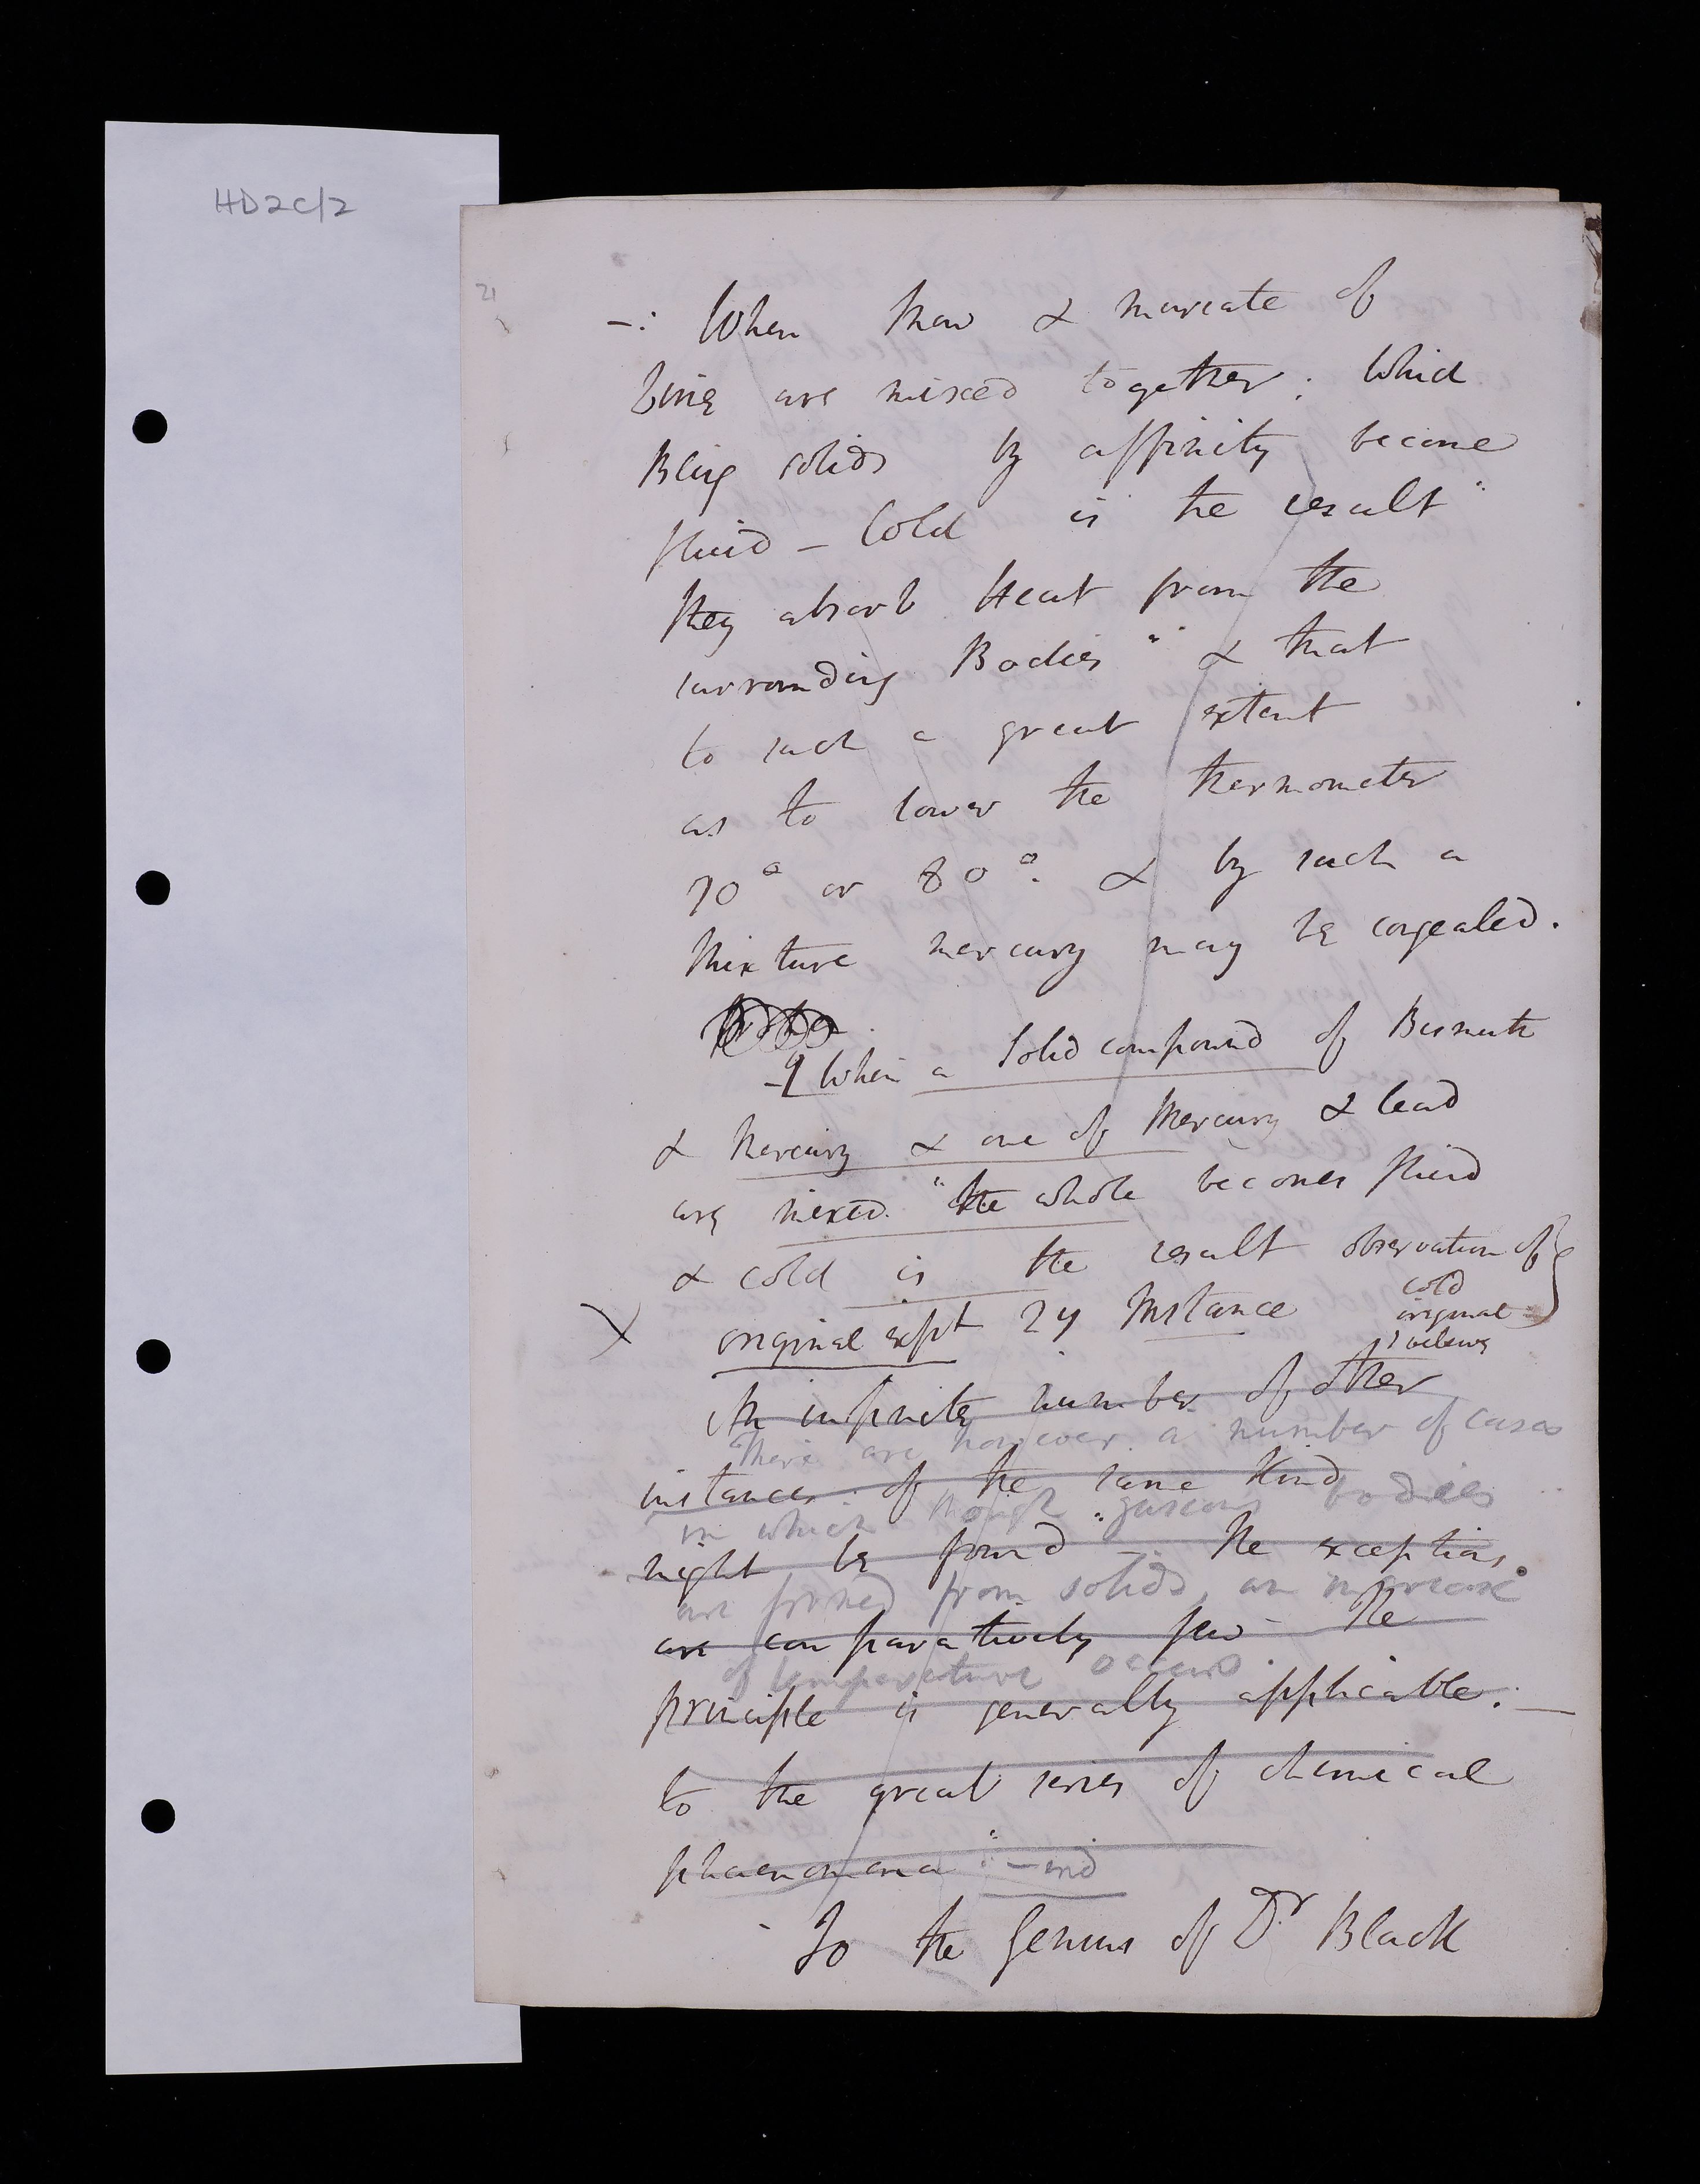 HD2C/2
21
-: When snow & muriate of
lime are mixed together; Which
Being solids by affinity become
fluid - Cold is the result"
they absorb Heat from the
surrounding Bodies " & that
to such a great extent
as to lower the thermometer
70° or 80°. & by such a
Mixture mercury may be congealed.
- When a Solid compound of Bismuth
& Mercury & one of Mercury & lead
are mixed. "the whole becomes fluid
& cold is the result observation of
cold
original
X original expt 2y Instance
An infinite number of other
There are however a number of cases
instances of the same Kind
in which though gaseous bodies
might be found - The exceptions
are formed from solids, an increase
are comparatively few - The
of temperature occurs.
principle is generally applicable. -
to the great series of chemical
phaenomena " - end
- To the Genius of Dr Black